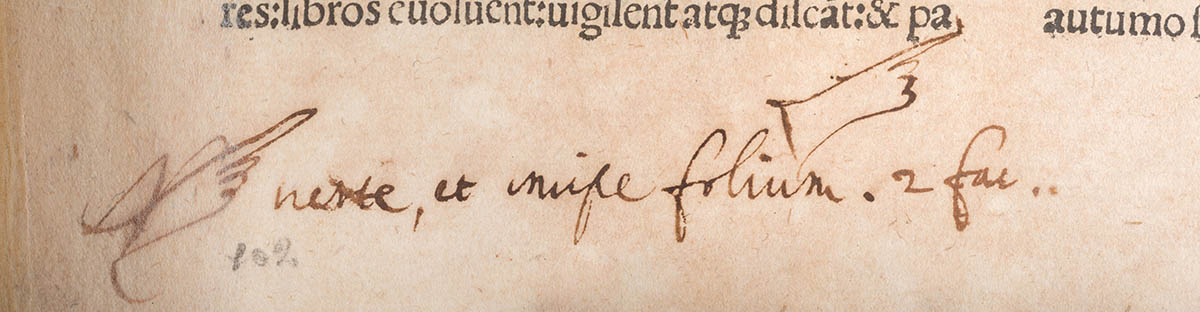 res:libros euoluent:uigilent atqꝫ discāt:& pa autumo f
verte, et inuise folium. 2 fac..
102